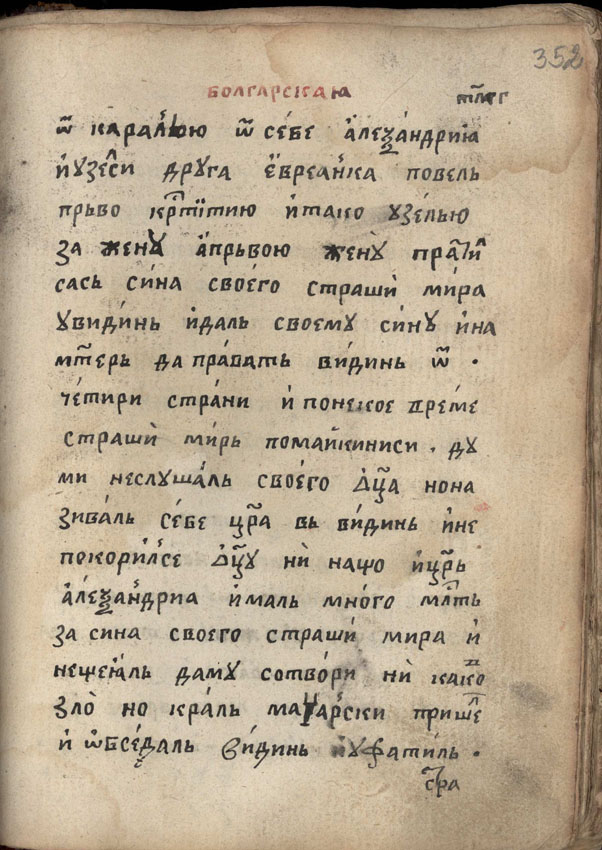 352
БОЛГАРСКАꙖ
ѿ каралѣ́ю ѿ се́бе а́леѯа́ндриꙗ
и҆узеси дрꙋга е҆вреа́нка повель
прьво крⷭ҇тїтию и҆тако ꙋзе́лью
за женꙋ̀ а҆прьвою женꙋ̀
сась си́на свое́го страшѝ ми́ра
ꙋвиди́нь и҆даль своемꙋ си́нꙋ и҆на
мт҃ерь да пра́вать ви́динь ѿ ·
че́тири стра́ни и҆ понекое време
страшѝ ми́рь помайкиниси . дꙋ
ми неслꙋша́ль свое́го ѻц҃а нона
зива́ль се́бе цр҃а вь ви́динь и҆не
покори́лсе ѻц҃ꙋ нѝ нащо и҆цр҃ь
а́леѯа́ндриа и҆маль мно́го млⷭ҇ть
за сина своего страшѝ мира и҆
нещеꙗ́ль дамꙋ сотво́ри нѝ како
зло̀ но кра́ль маџа́рски прише
и҆ ѡ҆бсе́даль ви́динь и҆ꙋфати́ль ·
стра